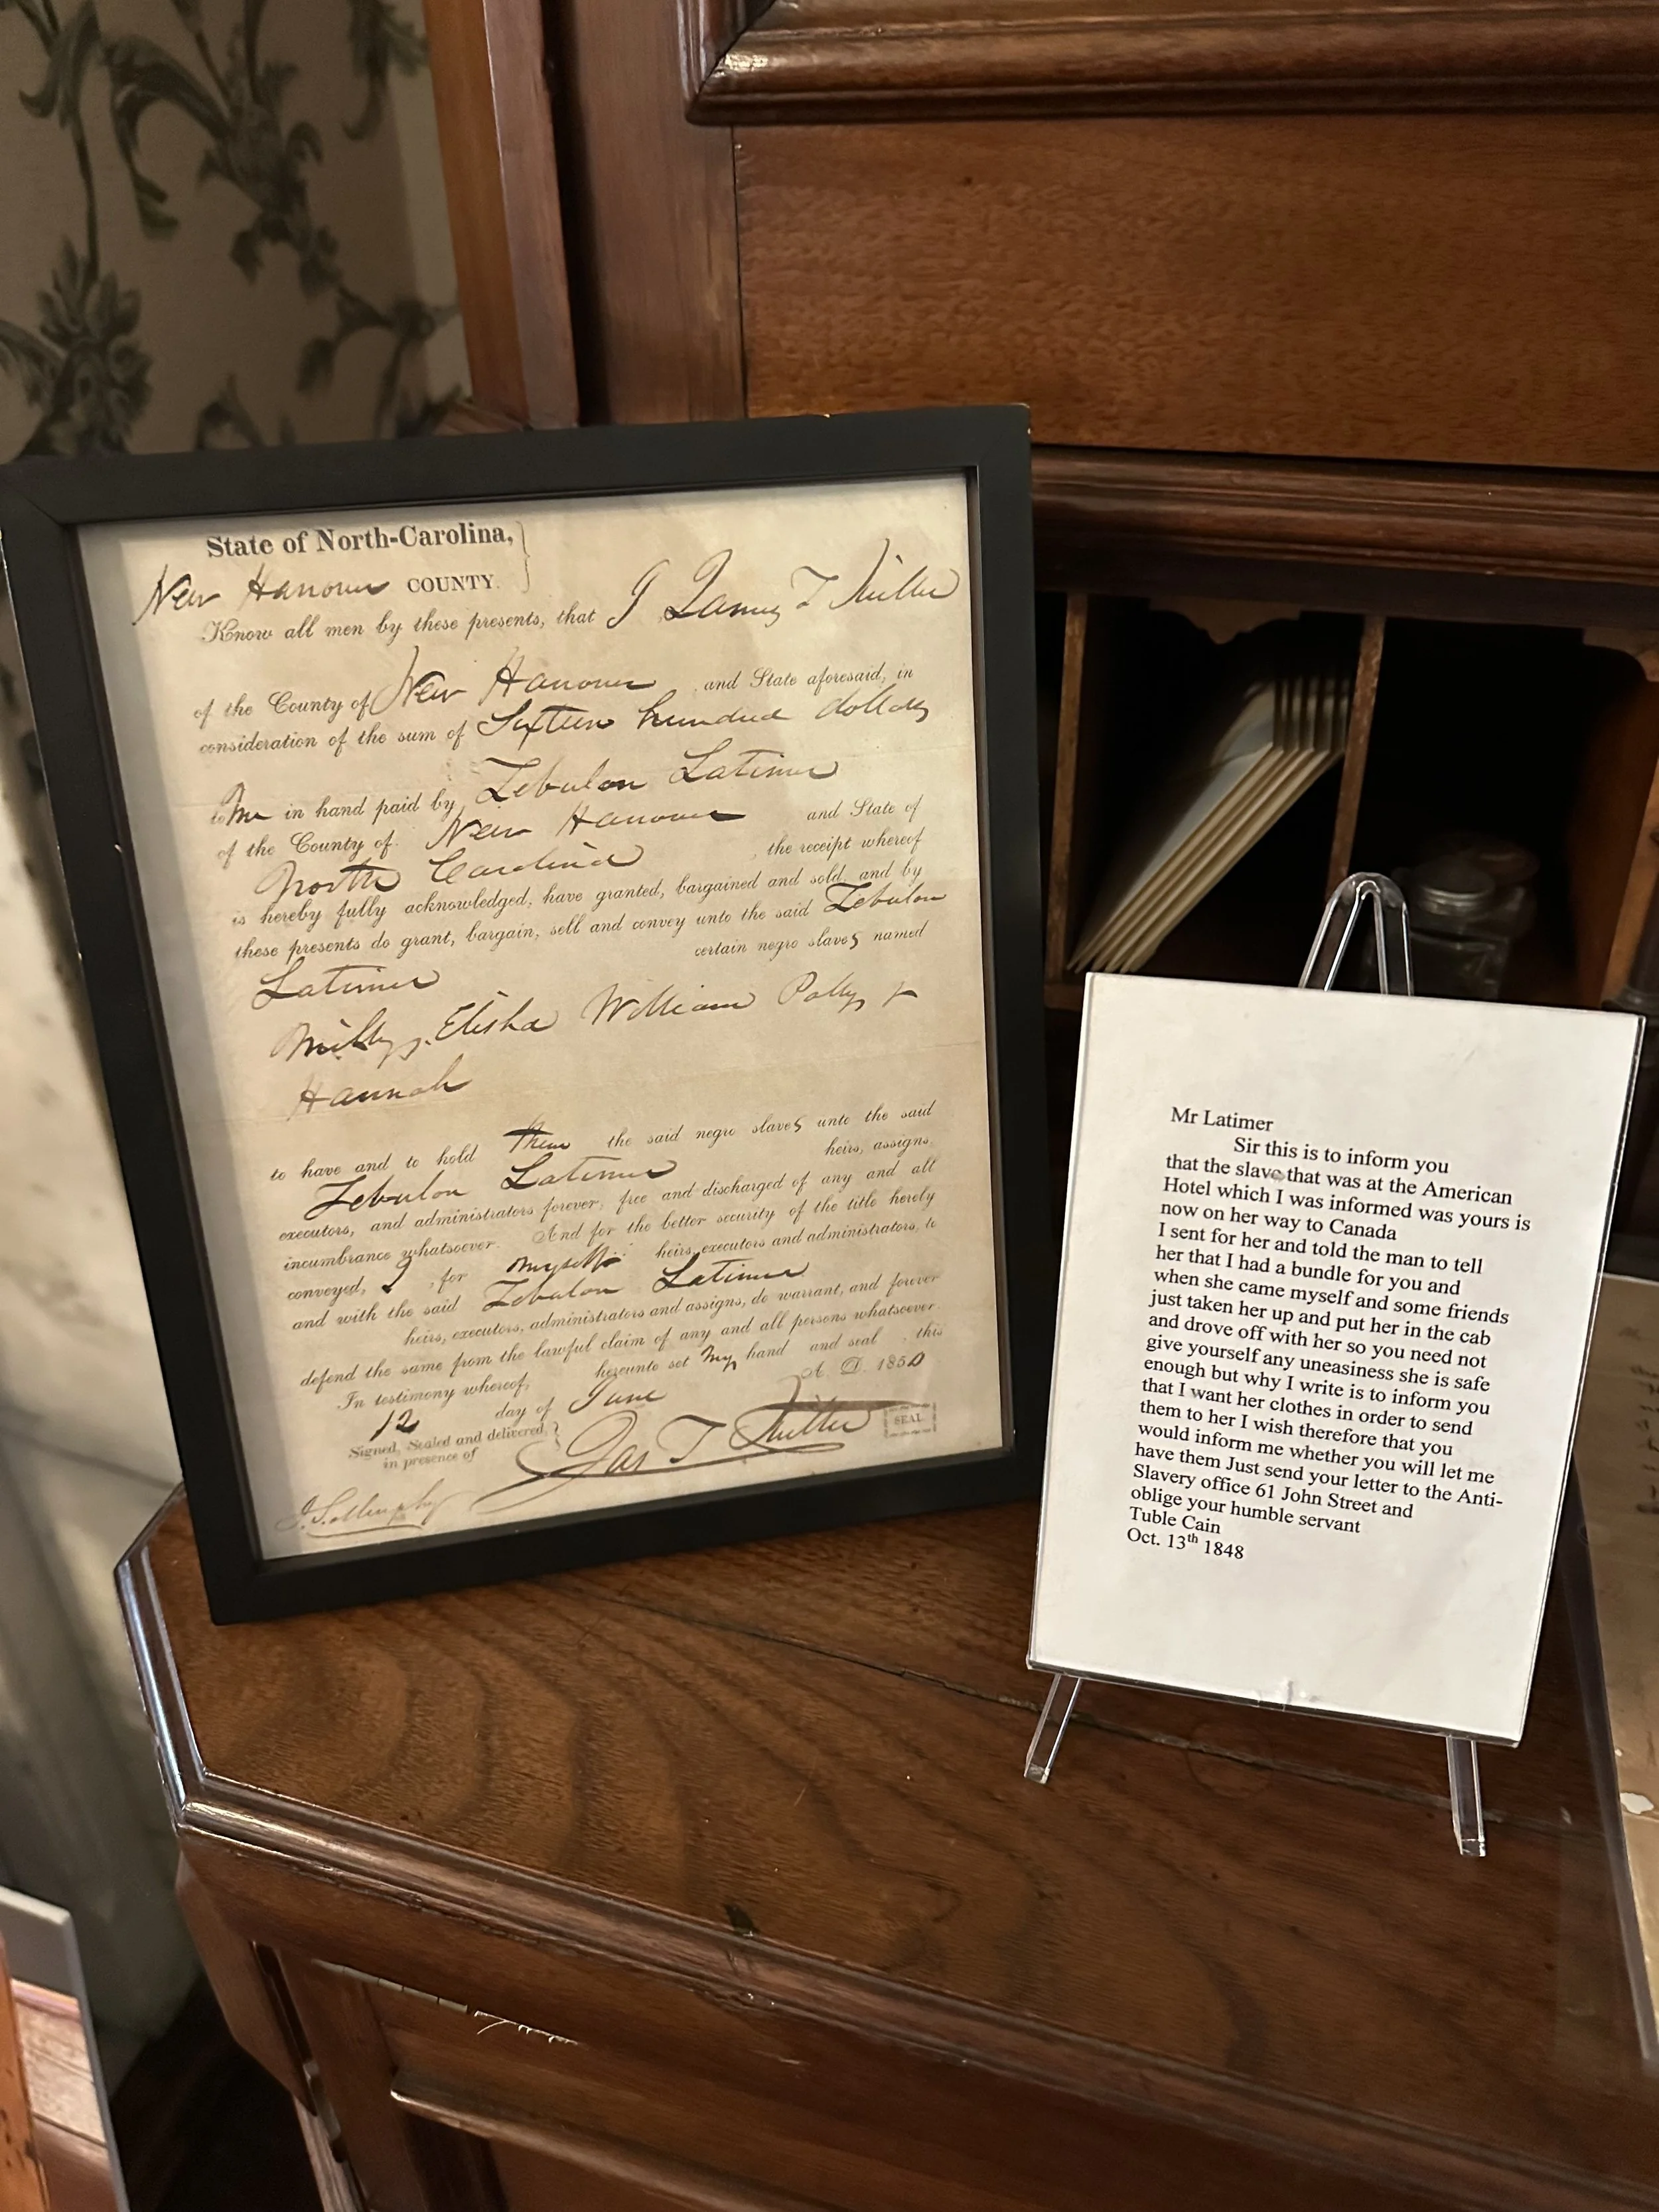 State of North-Carolina,
New Hanover COUNTY.
Know all men by these presents, that I James T Miller
of the County of New Hanover and State aforesaid, in
consideration of the sum of Sixteen hundred dollars
to me in hand paid by Zebulon Latimer
of the County of New Hanover and State of
North Carolina , the receipt whereof
is hereby fully acknowledged, have granted, bargained and sold, and by
these presents do grant, bargain, sell and convey unto the said Zebulon
Latimer certain negro slaves named
Milly, Elisha William Polly &
Hannah
to have and to hold them the said negro slaves unto the said
Zebulon Latimer heirs, assigns,
executors, and administrators forever, free and discharged of any and all
incumbrance whatsoever. And for the better security of the title hereby
conveyed, I , for myself heirs, executors and administrators, to
and with the said Zebulon Latimer
heirs, executors, administrators and assigns, do warrant, and forever
defend the same from the lawful claim of any and all persons whatsoever.
In testimony whereof, hereunto set my hand and seal , this
12 day of June A. D. 1850
Signed, Sealed and delivered,
in presence of
Jas T Miller SEAL
Mr Latimer
Sir this is to inform you
that the slave that was at the American
Hotel which I was informed was yours is
now on her way to Canada
I sent for her and told the man to tell
her that I had a bundle for you and
when she came myself and some friends
just taken her up and put her in the cab
and drove off with her so you need not
give yourself any uneasiness she is safe
enough but why I write is to inform you
that I want her clothes in order to send
them to her I wish therefore that you
would inform me whether you will let me
have them Just send your letter to the Anti-
Slavery office 61 John Street and
oblige your humble servant
Tuble Cain
Oct. 13th 1848